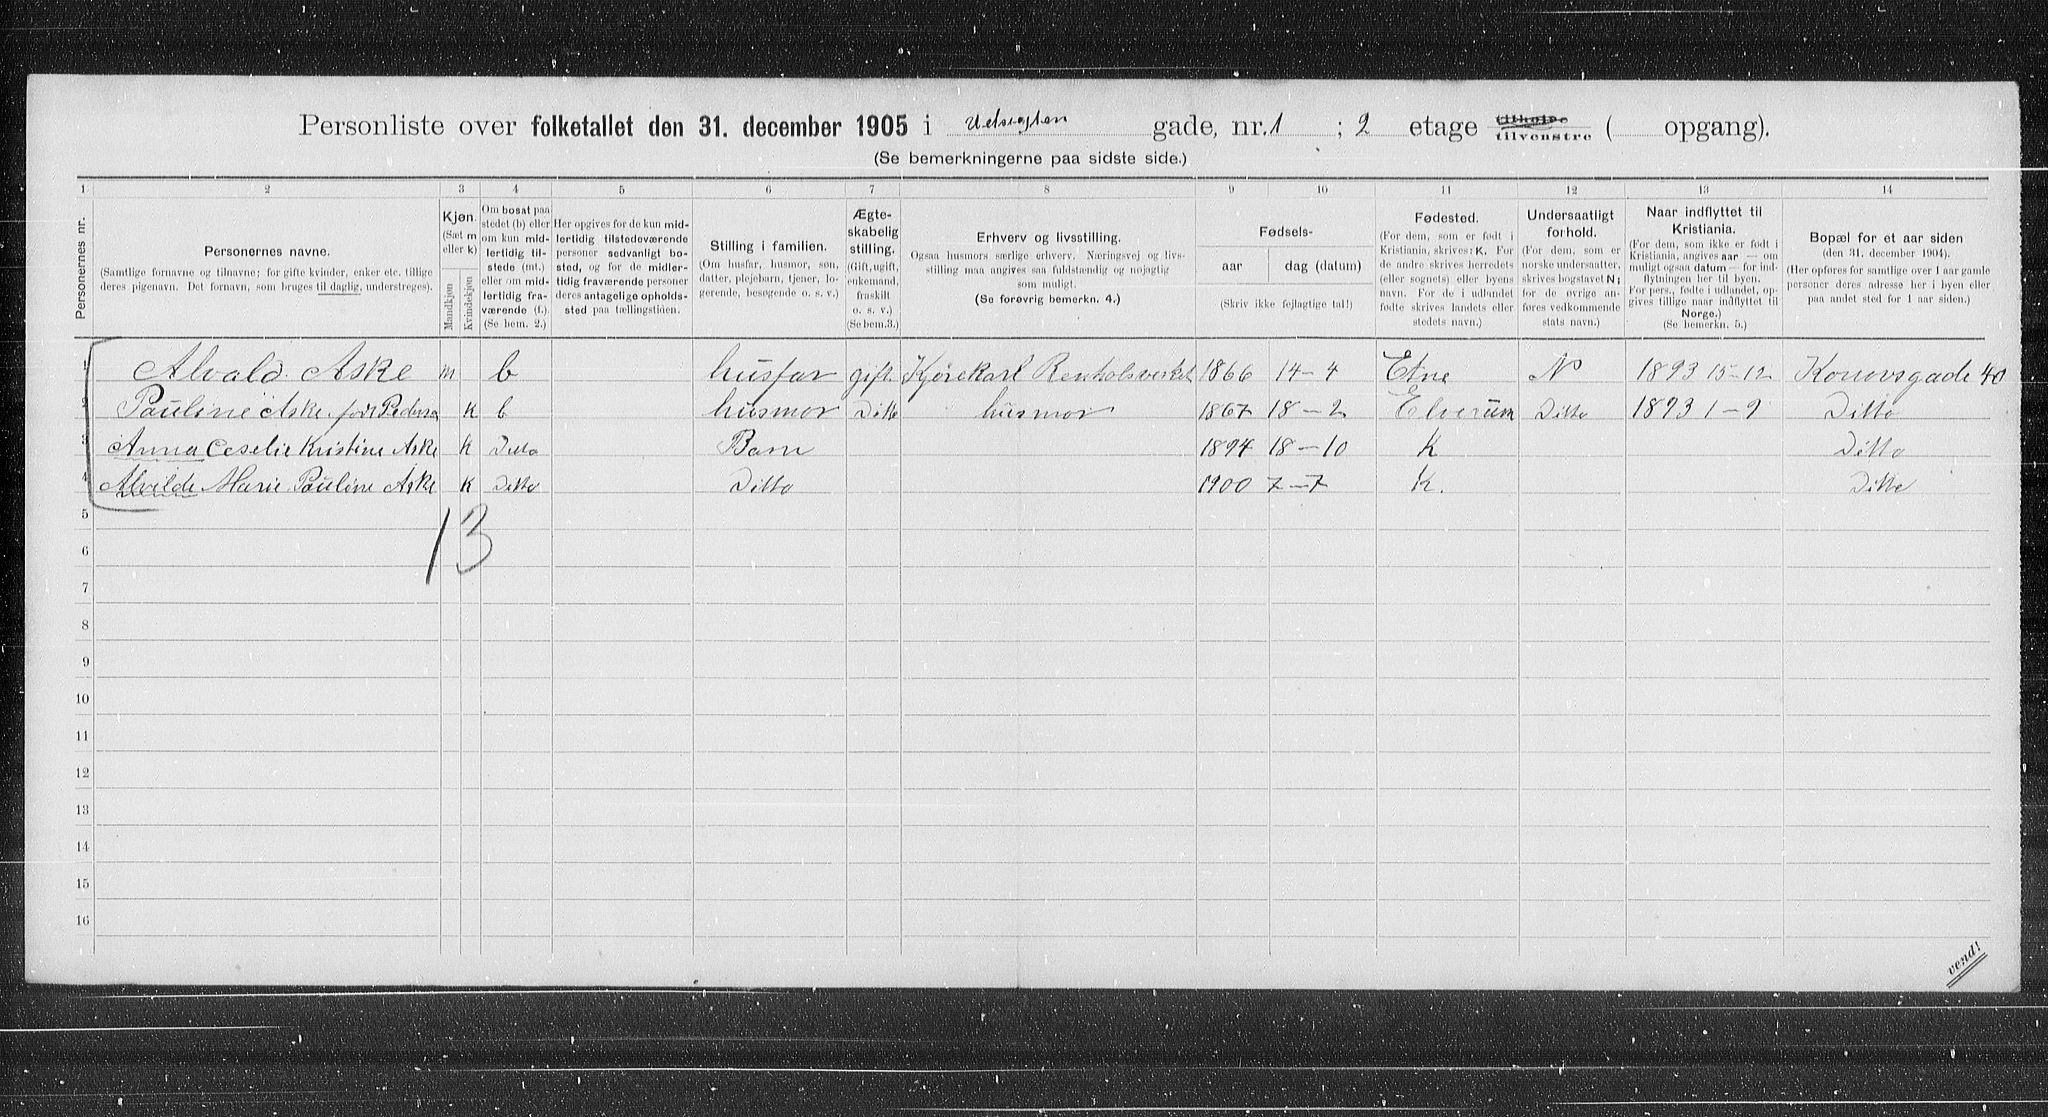 Personliste over folketallet den 31. december 1905 i Udsigten gade, nr. 1 ; 2 etage tilhøire tilvenstre ( opgang).
(Se bemerkningerne paa sidste side.)
1 2 3 4 5 6 7 8 9 10 11 12 13 14
Personernes nr.
Personernes navne.
(Samtlige fornavne og tilnavne; for gifte kvinder, enker etc. tillige
deres pigenavn. Det fornavn, som bruges til daglig, understreges).
Kjøn.
(Sæt m
eller k)
Mandkjøn
Kvindekjøn
Om bosat paa
stedet (b) eller
om kun mid-
lertidig til-
stede (mt.)
eller om mid-
lertidig fra-
værende (f.).
(Se bem. 2.)
Her opgives for de kun mid-
lertidig tilstedeværende
personer sedvanligt bo-
sted, og for de midler-
tidig fraværende personer
deres antagelige opholds-
sted paa tællingstiden.
Stilling i familien.
(Om husfar, husmor, søn,
datter, plejebarn, tjener, lo-
gerende, besøgende o. s. v.)
Ægte-
skabelig
stilling.
(Gift, ugift,
enkemand,
fraskilt
o. s. v.)
(Se bem.3.)
Erhverv og livsstilling.
Ogsaa husmors særlige erhverv. Næringsvej og livs-
stilling maa angives saa fuldstændig og nøjagtig
som muligt.
(Se forøvrig bemerkn. 4.)
Fødsels-
aar dag (datum)
(Skriv ikke fejlagtige tal!)
Fødested.
(For dem, som er født i
Kristiania, skrives: K. For
de andre skrives herredets
(eller sognets) eller byens
navn. For de i udlandet
fødte skrives landets eller
stedets navn.)
Undersaatligt
forhold.
(For dem, som er
norske undersaatter,
skrives bogstavet N;
for de øvrige an-
føres vedkommende
stats navn.)
Naar indflyttet til
Kristiania.
(For dem, som ikke er født i
Kristiania, angives aar — om
muligt ogsaa datum — for ind-
flytningen her til byen.
For pers., fødte i udlandet, op-
gives tillige naar indflyttet til
Norge.)
(Se bemerkn. 5.)
Bopæl for et aar siden
(den 31. december 1904).
(Her opføres for samtlige over 1 aar gamle
personer deres adresse her i byen eller
paa andet sted for 1 aar siden.)
1 Alvald Aske m b husfar gift. Kjørekarl Renholsverket 1866 14-4 Etne N 1893 15-12 Konovsgade 40
2 Pauline Aske født Pedersen K b husmor Ditto husmor 1867 18-2 Elverum Ditto 1893 1-9 Ditto
3 Anna Ceselie Kristine Aske K Ditto Barn 1894 18-10 K Ditto
4 Alvilde Marie Pauline Aske K Ditto Ditto 1900 7-7 K. Ditto
5
13
6
7
8
9
10
11
12
13
14
15
16
vend!